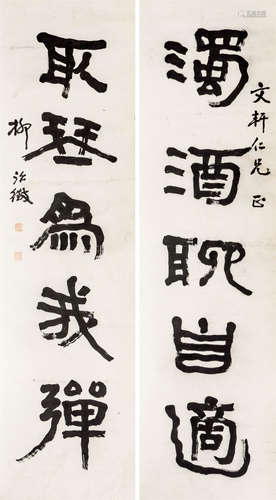 文轩仁兄 正
濁酒聊自適
取琴為我彈
柳詒徵